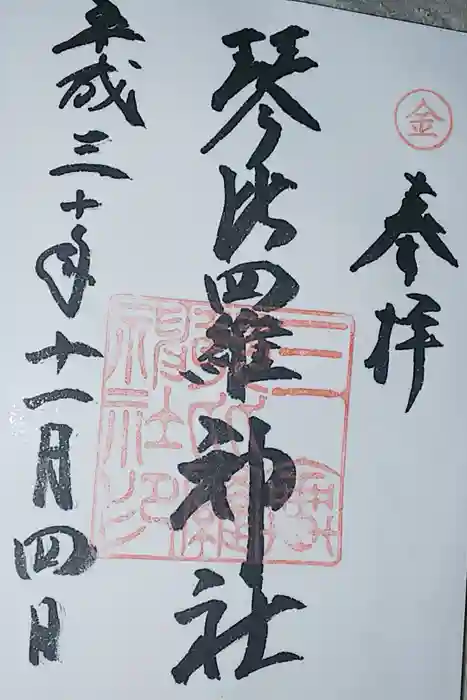 金
奉拝
琴比羅神社
平成三十年十一月四日